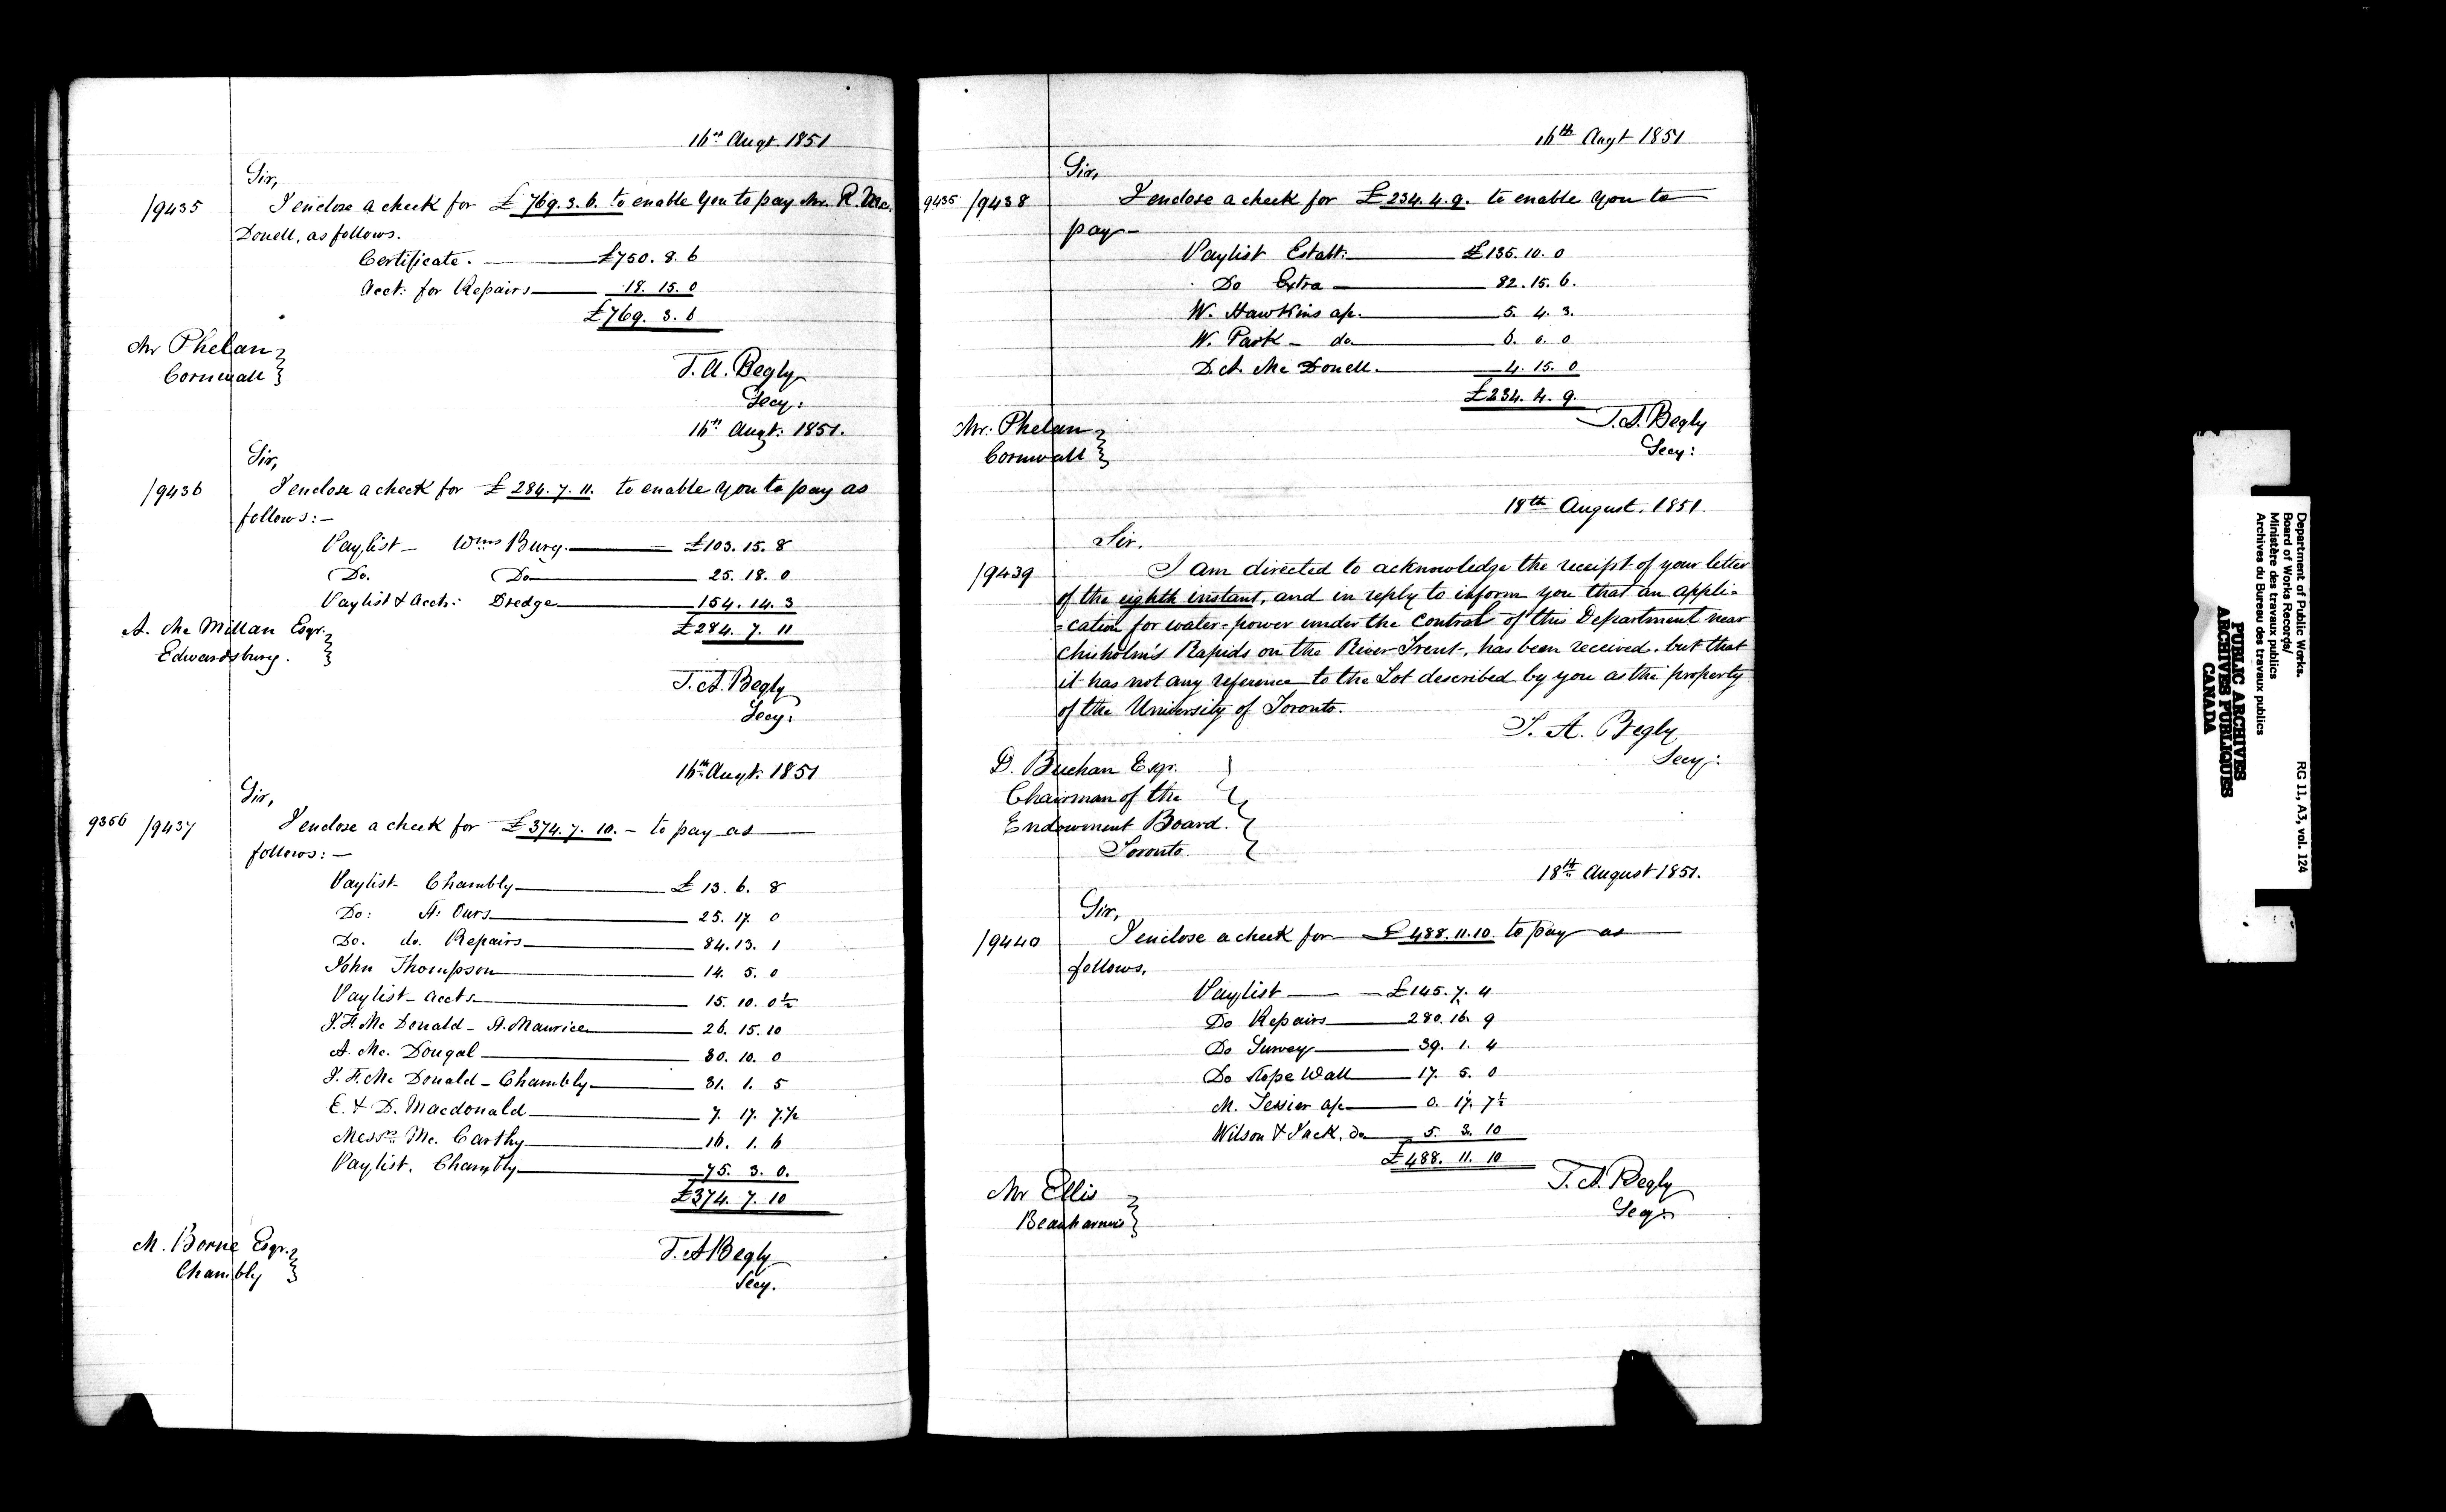 16th Augt. 1851
Sir,
/9435 I enclose a check for £769.3.6. to enable you to pay Mr. R. Mc.
Donell, as follows.
Certificate. £750. 8. 6
Acct: for Repairs 18. 15. 0
£769. 3. 6
Mr Phelan
Cornwall
T. A. Begly
Secy:
16th Augt: 1851.
Sir,
/9436 I enclose a check for £284.7.11. to enable you to pay as
follows:-
Paylist - Wms Burg. £103. 15. 8
Do. Do 25. 18. 0
Paylist & Accts: Dredge 154. 14. 3
£284. 7. 11
A. Mc Millan Esqr.
Edwardsburg.
T. A. Begly
Secy:
16th Augt: 1851
Sir,
9356 /9437 I enclose a check for £374. 7. 10. - to pay as
follows:-
Paylist - Chambly £ 13. 6. 8
Do: St. Ours 25. 17. 0
Do. do. Repairs 84. 13. 1
John Thompson 14. 5. 0
Paylist - accts 15. 10. 0½
J. F. Mc Donald - St. Maurice 26. 15. 10
A. Mc. Dougal 80. 10. 0
J. F. Mc Donald - Chambly 31. 1. 5
E. & D. Macdonald 7. 17. 7½
Messrs. Mc. Carthy 16. 1. 6
Paylist. Chambly 75. 3. 0.
£374. 7. 10
M. Borne Esqr.
Chambly
T. A Begly
Secy.
16th Augt 1851
Sir,
9435 /9438 I enclose a check for £234. 4. 9. to enable you to
pay -
Paylist Estabt: £135. 10. 0
Do Extra 82. 15. 6.
W. Hawkins a/c. 5. 4. 3.
W. Park - do 6. 0. 0
D. A. Mc Donell. 4. 15. 0
£234. 4. 9.
Mr: Phelan
Cornwall
T. A. Begly
Secy:
18th August. 1851
Sir,
/9439 I am directed to acknowledge the receipt of your letter
of the eighth instant, and in reply to inform you that an appli=
=cation for water-power under the control of this Department near
Chisholm's Rapids on the River Trent, has been received, but that
it has not any reference to the Lot described by you as the property
of the University of Toronto.
T. A. Begly
Secy:
D. Buchan Esqr.
Chairman of the
Endowment Board.
Toronto.
18th August 1851.
Sir,
/9440 I enclose a check for £488. 11. 10. to pay as
follows,
Paylist £145. 7. 4
Do Repairs 280. 16. 9
Do Survey 39. 1. 4
Do Slope Wall 17. 5. 0
M. Tessier a/c 0. 17. 7½
Wilson & Jack. do 5. 3. 10
£488. 11. 10
Mr Ellis
Beauharnois
T. A. Begly
Secy:
Department of Public Works.
Board of Works Records/
Ministère des travaux publics
Archives du Bureau des travaux publics
RG 11, A3, vol. 124
PUBLIC ARCHIVES
ARCHIVES PUBLIQUES
CANADA